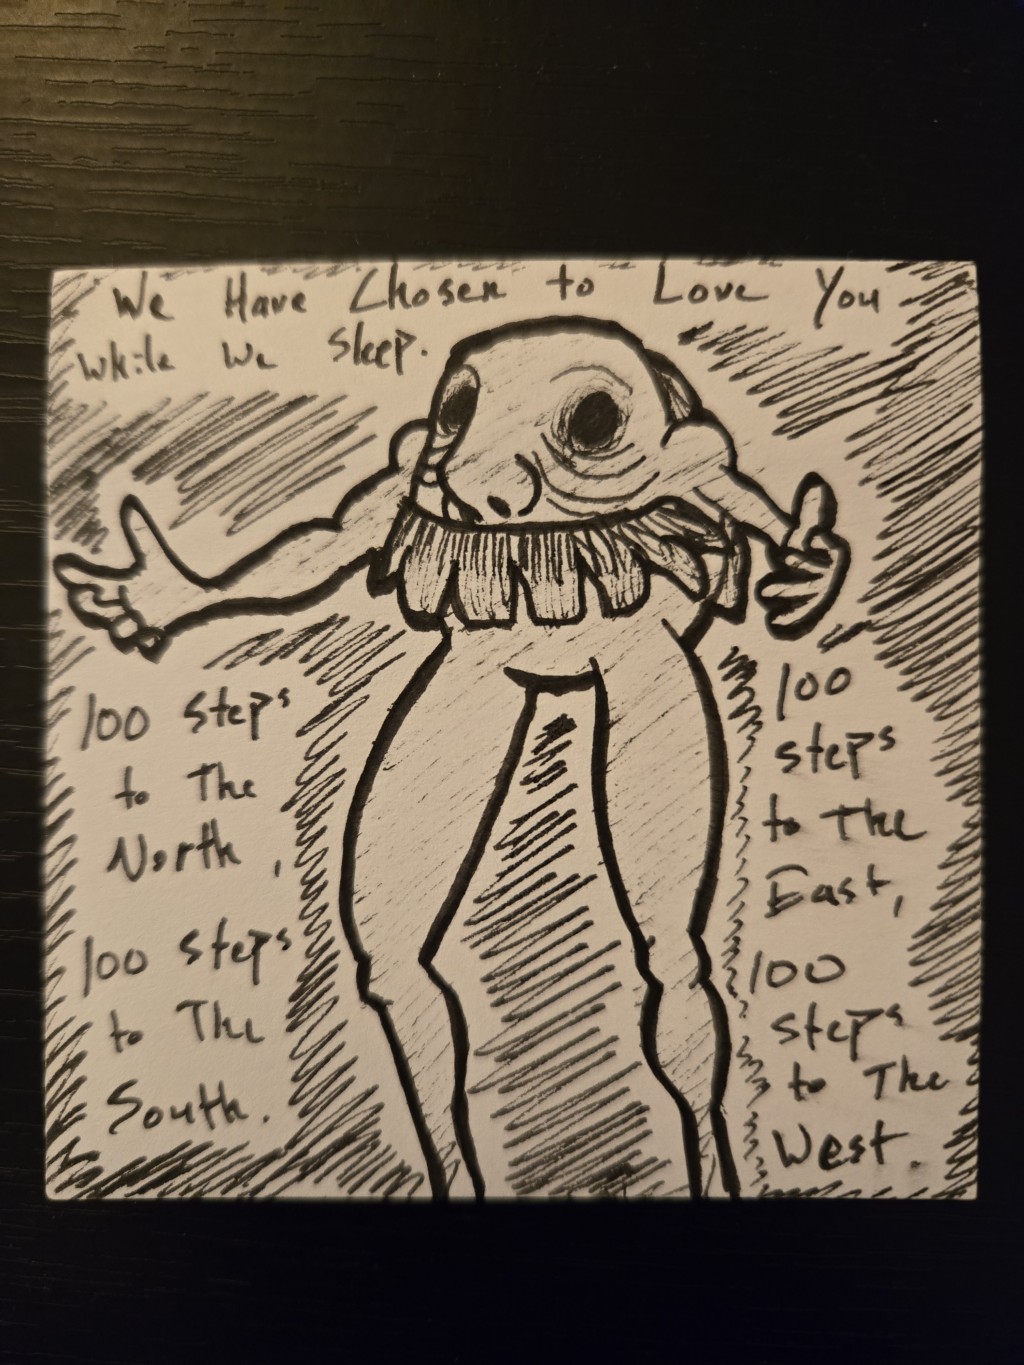 We Have Chosen to Love You
while we sleep.
100 steps
to The
North,
100 steps
to The
South.
100
steps
to The
East,
100
steps
to The
West.